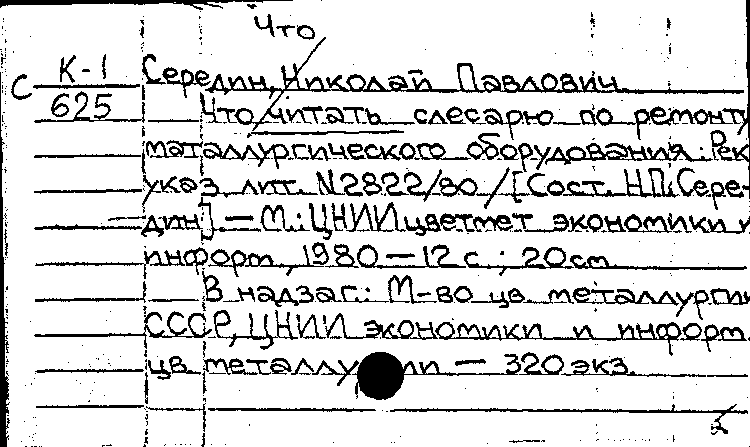 Что
С К-1 Середин, Николай Павлович
625 Что читать слесарю по ремонту
металлургического оборудования: Рек.
указ. лит. N2822/80 / [Сост. Н.П. Сере-
дин]. — М.: ЦНИИцветмет экономики и
информ., 1980 — 12 с ; 20 см
В надзаг.: М-во цв. металлургии
СССР, ЦНИИ экономики и информ.
цв металлу ии — 320 экз.